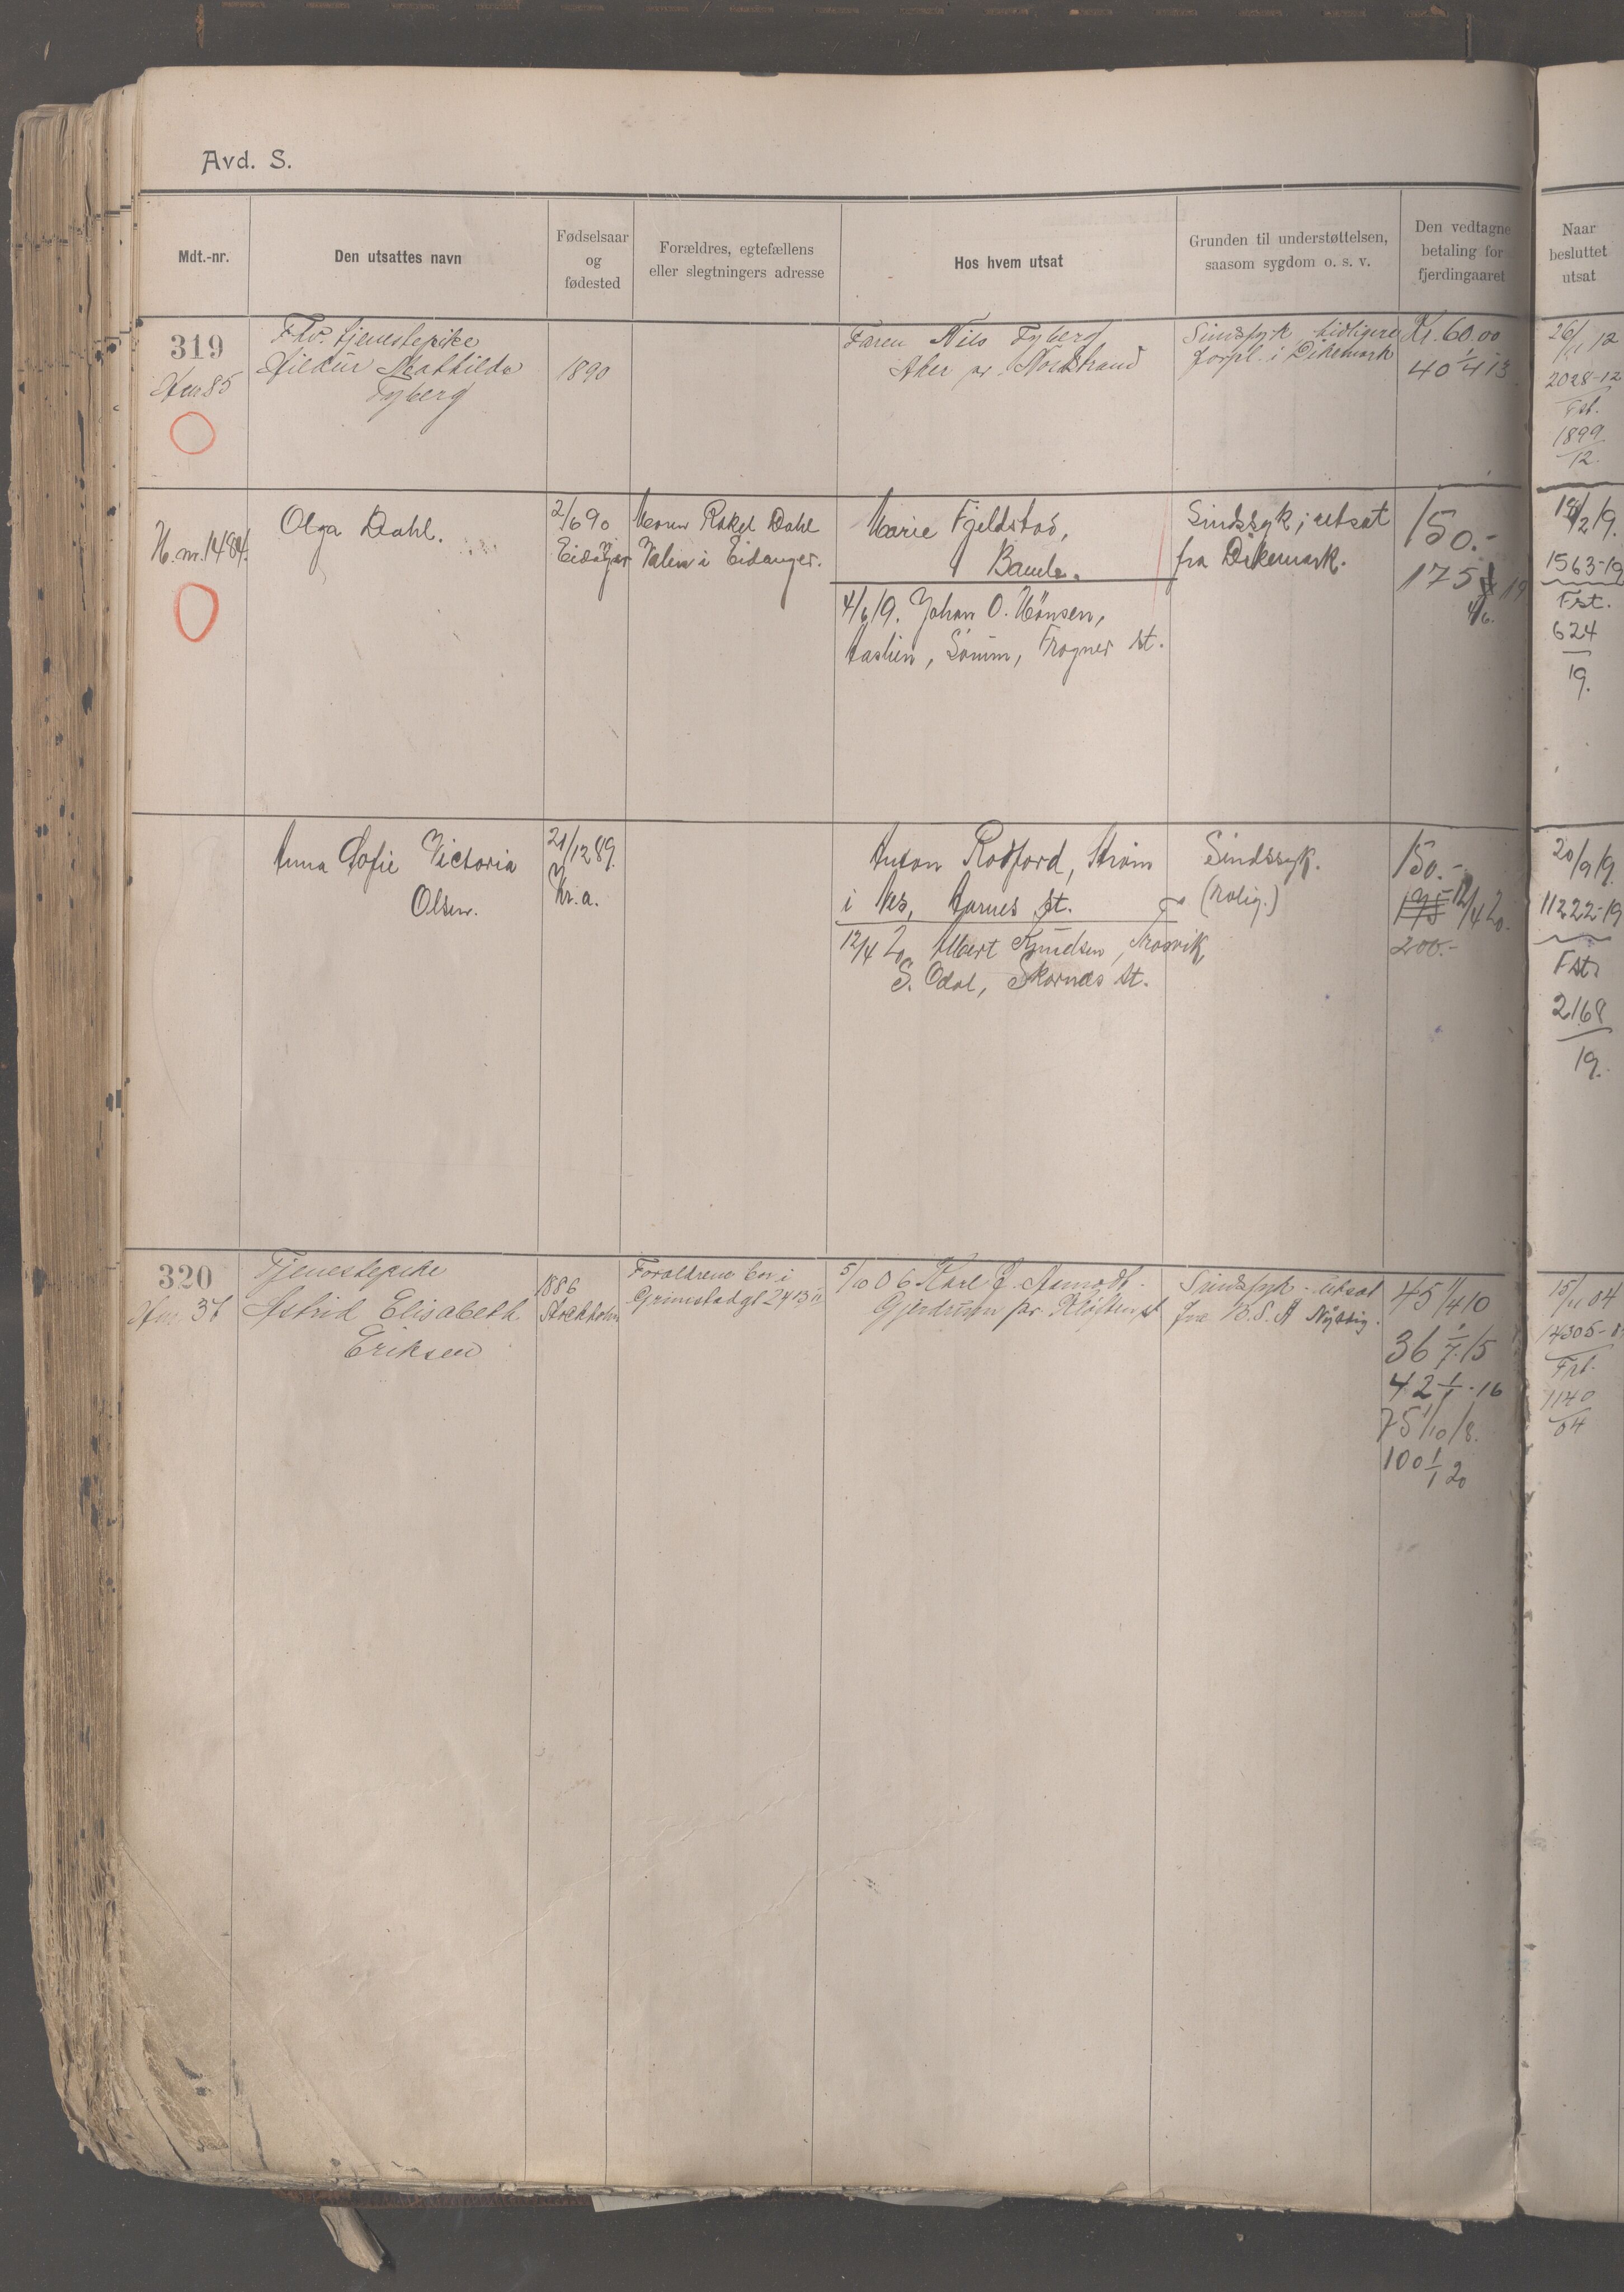 Avd. S.
Mdt.-nr.
Den utsattes navn
Fødselsaar
og
fødested
Forældres, egtefællens
eller slegtningers adresse
Hos hvem utsat
Grunden til understøttelsen,
saasom sygdom o. s. v.
Den vedtagne
betaling for
fjerdingaaret
Naar
besluttet
utsat
319
85
Fhv. tjenestepike
Mathilde
Fyberg
1890
Faren Nils Fyberg
Aker pr. Nordstrand
Sindssyk tidligere
forpl. i Dikemark
Kr. 60.00
40 1/4 13
26/11 12
2028-12
Fst.
1899
12.
H. nr. 1484.
Olga Dahl.
2/6 90
Eidanger
Moren Rakel Dahl
Valen i Eidanger.
Marie Fjeldstad,
Bamle.
4/6 19. Johan O. Hönsen,
Aaslien, Sörum, Frogner st.
Sindssyk; utsat
fra Dikemark.
150.-
175
4/6.
19
18/2 19.
1563-19
Fst.
624
19.
Anna Sofie Victoria
Olsen.
21/12 89.
Kr.a.
Anton Rodford, Strøm
i Nes, Aarnes st.
12/4 20 Albert Knudsen,
S. Odal, Skarnes st.
Sindssyk.
(rolig.)
150.-
175 12/4 20.
200.-
20/9 19.
11222-19
Fst.
2168
19.
320
Tjenestepike
Astrid Elisabeth
Eriksen
1886
Stockholm
Forældrene bor i
Grimstadgt 24
5/10 06 Karl J. Aamodt
Gjerdrum pr. Kløften st
Sindssyk - utsat
fra B. S. A
45 1/4 10
36 1/7 15
42 1/1 16
75 1/10 18.
100 1/1 20
15/11 04
14305-
Fst.
1140
04